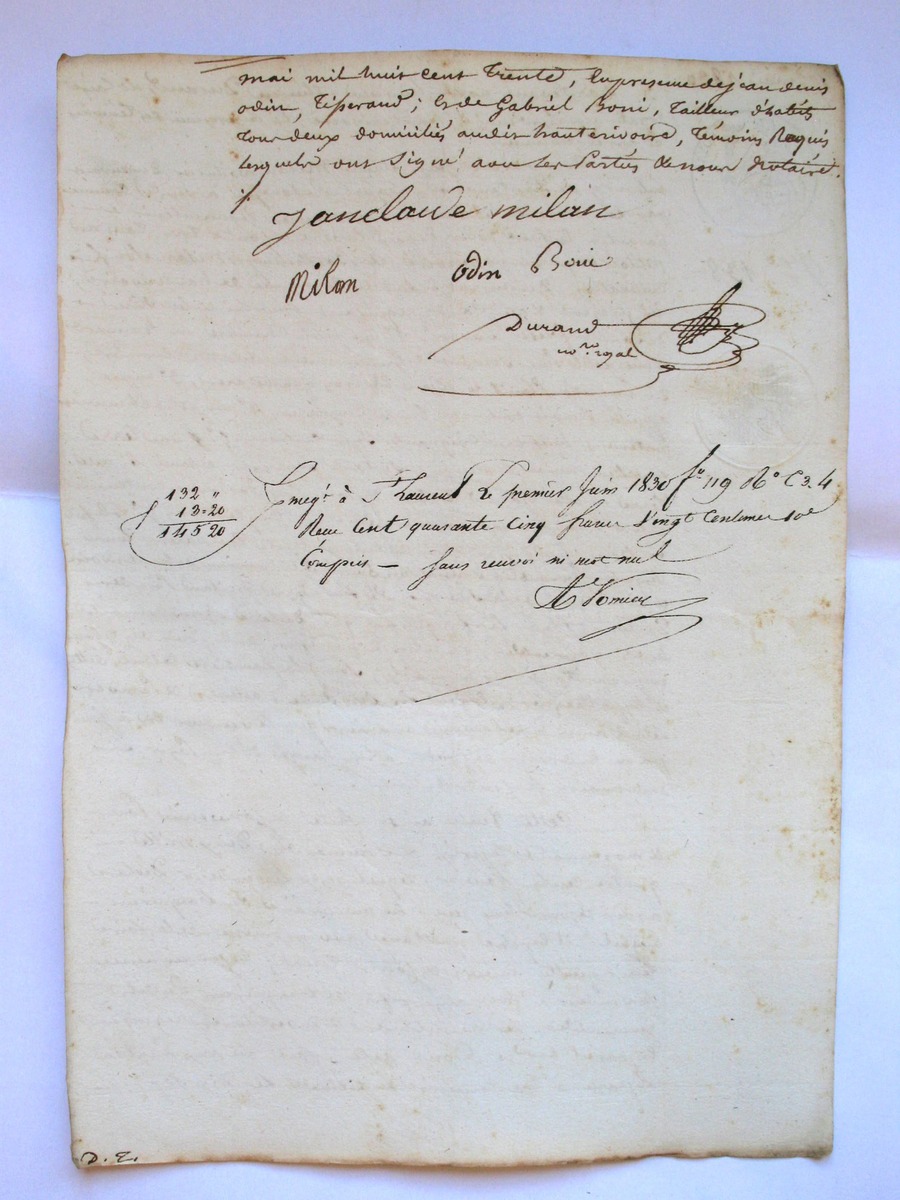 mai mil huit cent trente, En presence de jean denis
odin, Tisserand; Et de Gabriel Boni, Tailleur d'habits
Tous deux domiciliés audit hauterivoire, Témoins Requis
lesquels ont signé avec les Parties & nous Notaire.
Janclaude milan
Milan odin Boni
Durand
no.re royal
132 "
13=20
145 20
Enregt à St Laurent Le premier Juin 1830 fo 119 Ro C 3.4
Recu Cent quarante Cinq francs Vingt Centimes 10e
Compris — sans renvoi ni mot nul
D. E.